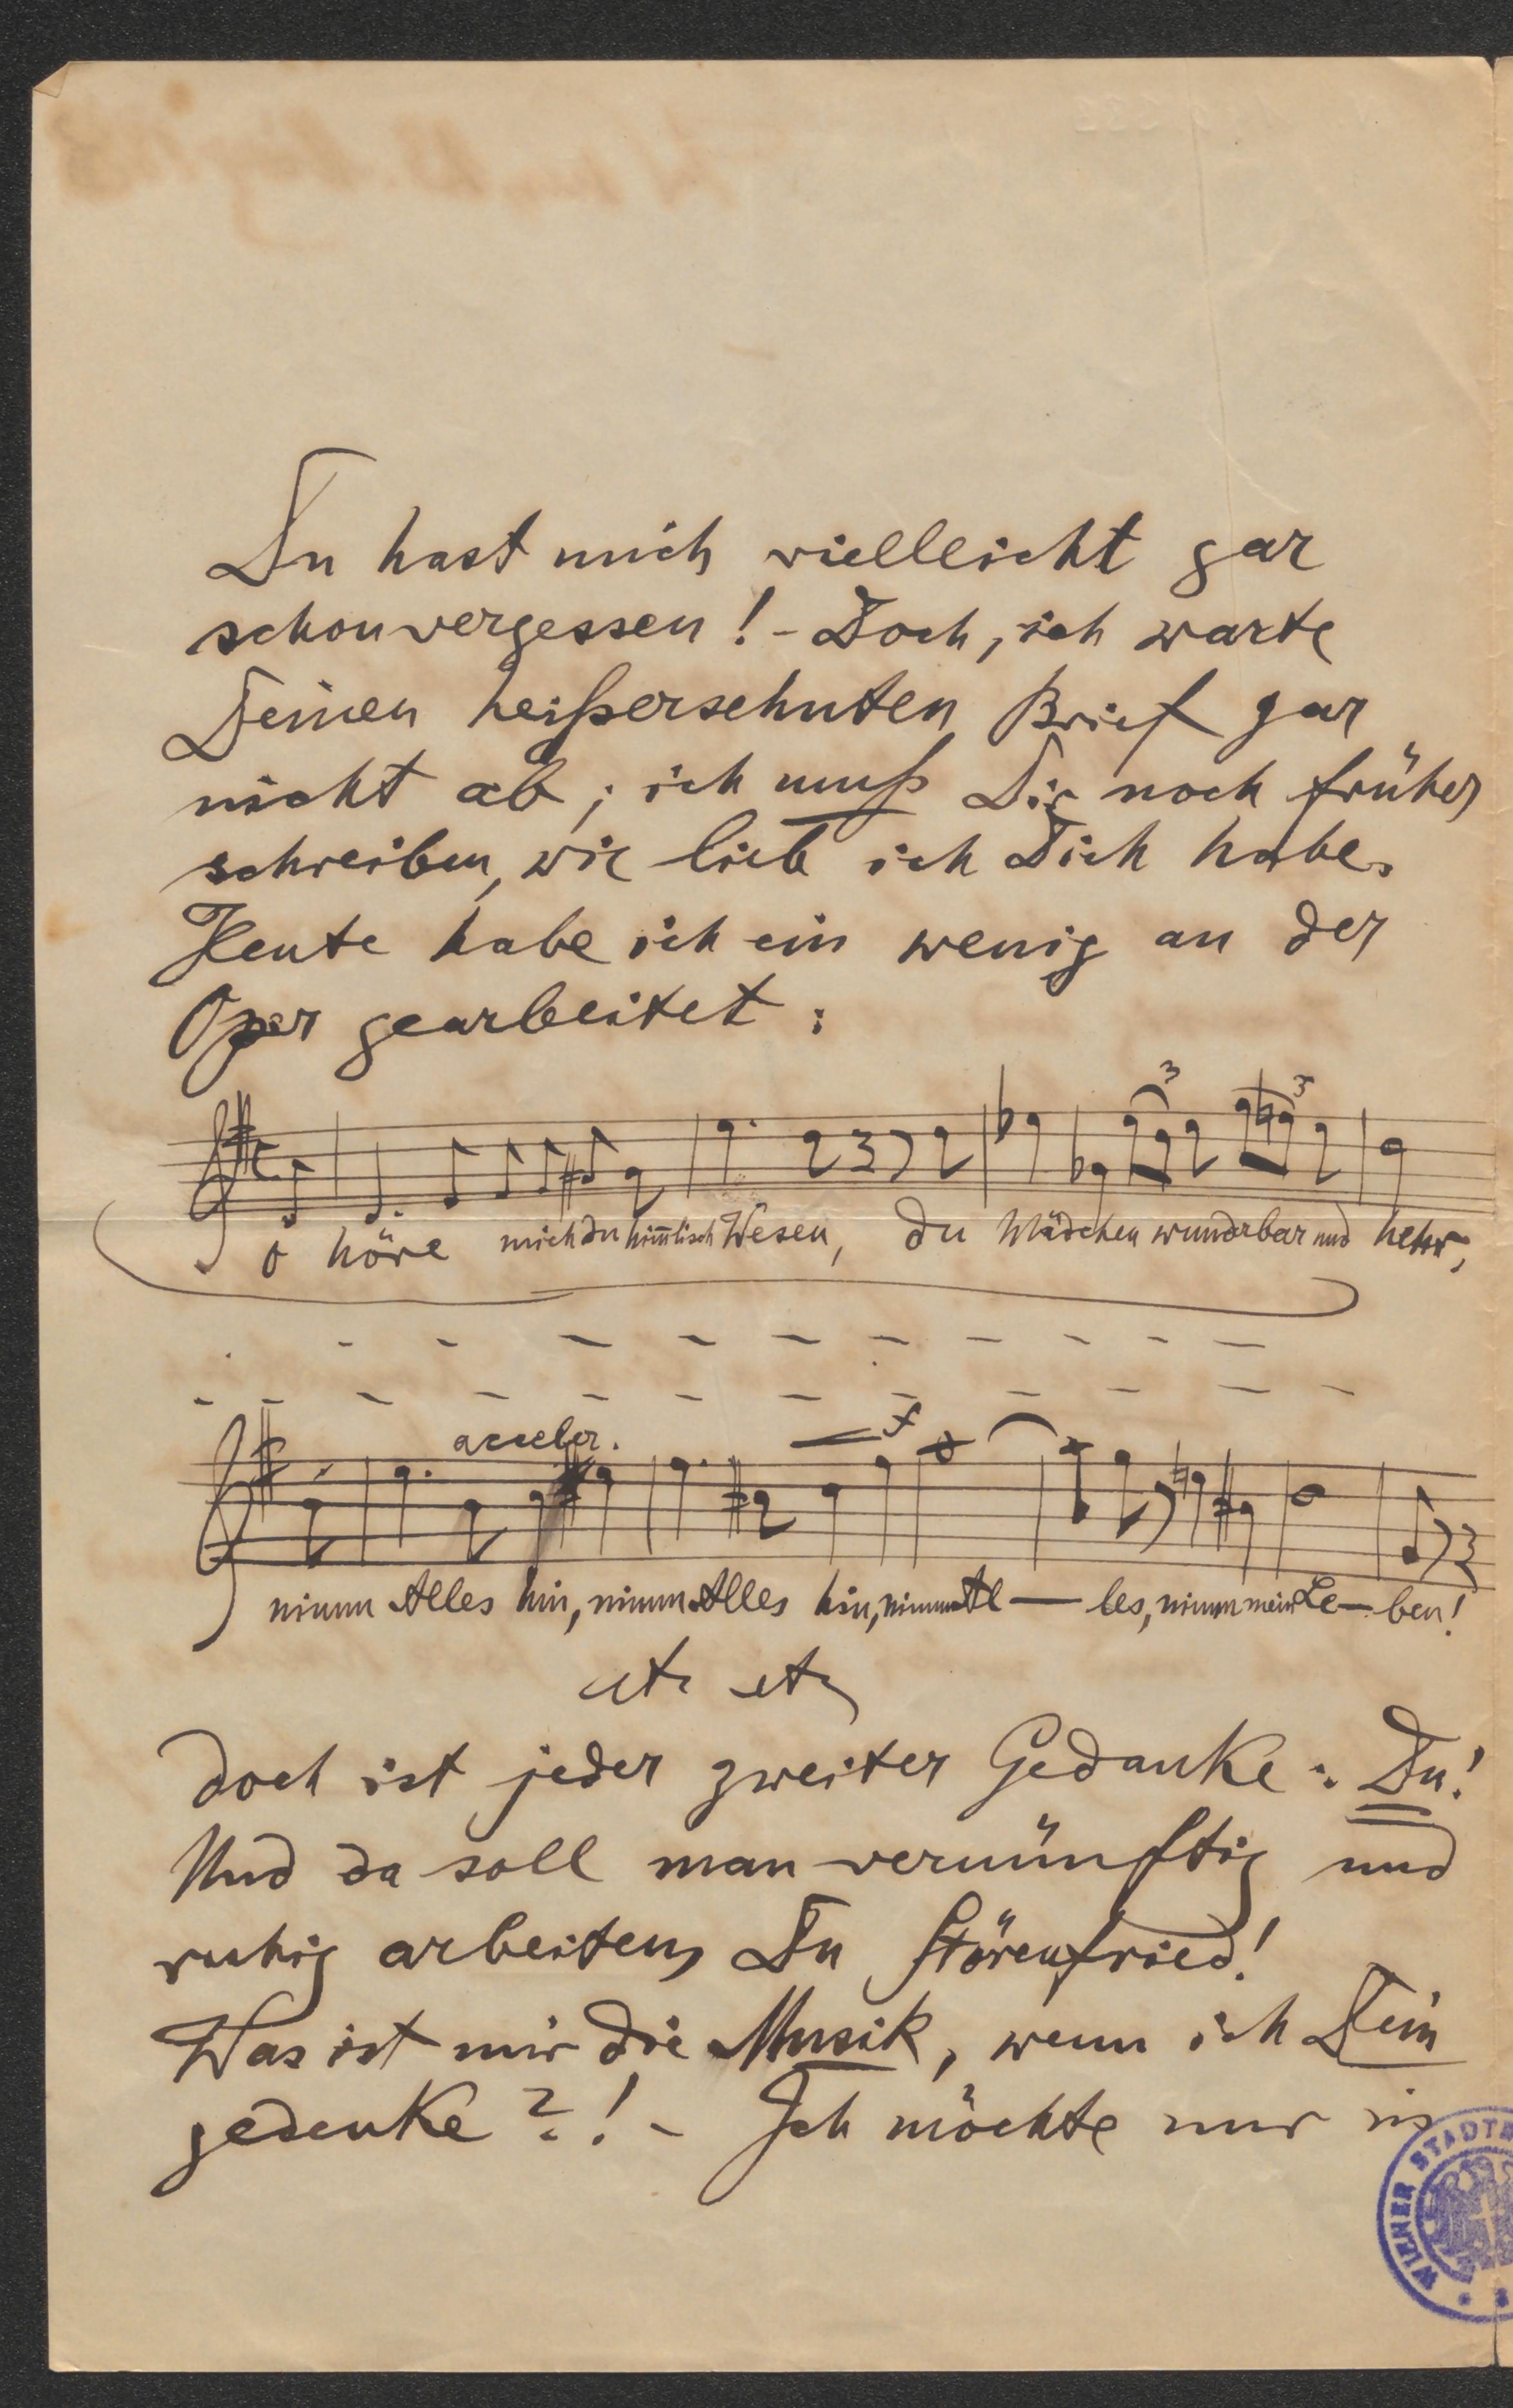 Du hast mich vielleicht gar
schon vergessen! - Doch, ich warte
Deinen heißersehnten Brief gar
nicht ab; ich muß Dir noch früher
schreiben, wie lieb ich Dich habe.
Heute habe ich ein wenig an der
Oper gearbeitet:
3 3
O höre mich du him̅lisch Wesen, du Mädchen wunderbar und hehr,
acceler. f
nimm Alles hin, nimm Alles hin, nimm Al — les, nimm mein Le — ben!
etc etc
doch ist jeder zweiter Gedanke: Du!
Und da soll man vernünftig und
ruhig arbeiten, Du Störenfried!
Was ist mir die Musik, wenn ich Dein
gedenke?! - Ich möchte nur in
WIENER STADT